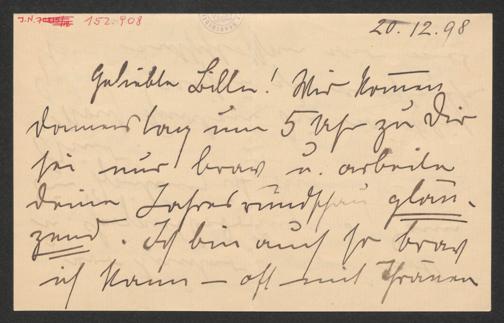 152.908
20.12.98
Geliebte Bille! Wir kom̅en
donnerstag um 5 Uhr zu Dir
sei nur brav u. arbeite
deine Jahresrundschau glän-
zend. Ich bin auch so brav
ich kann – oft mit Thränen